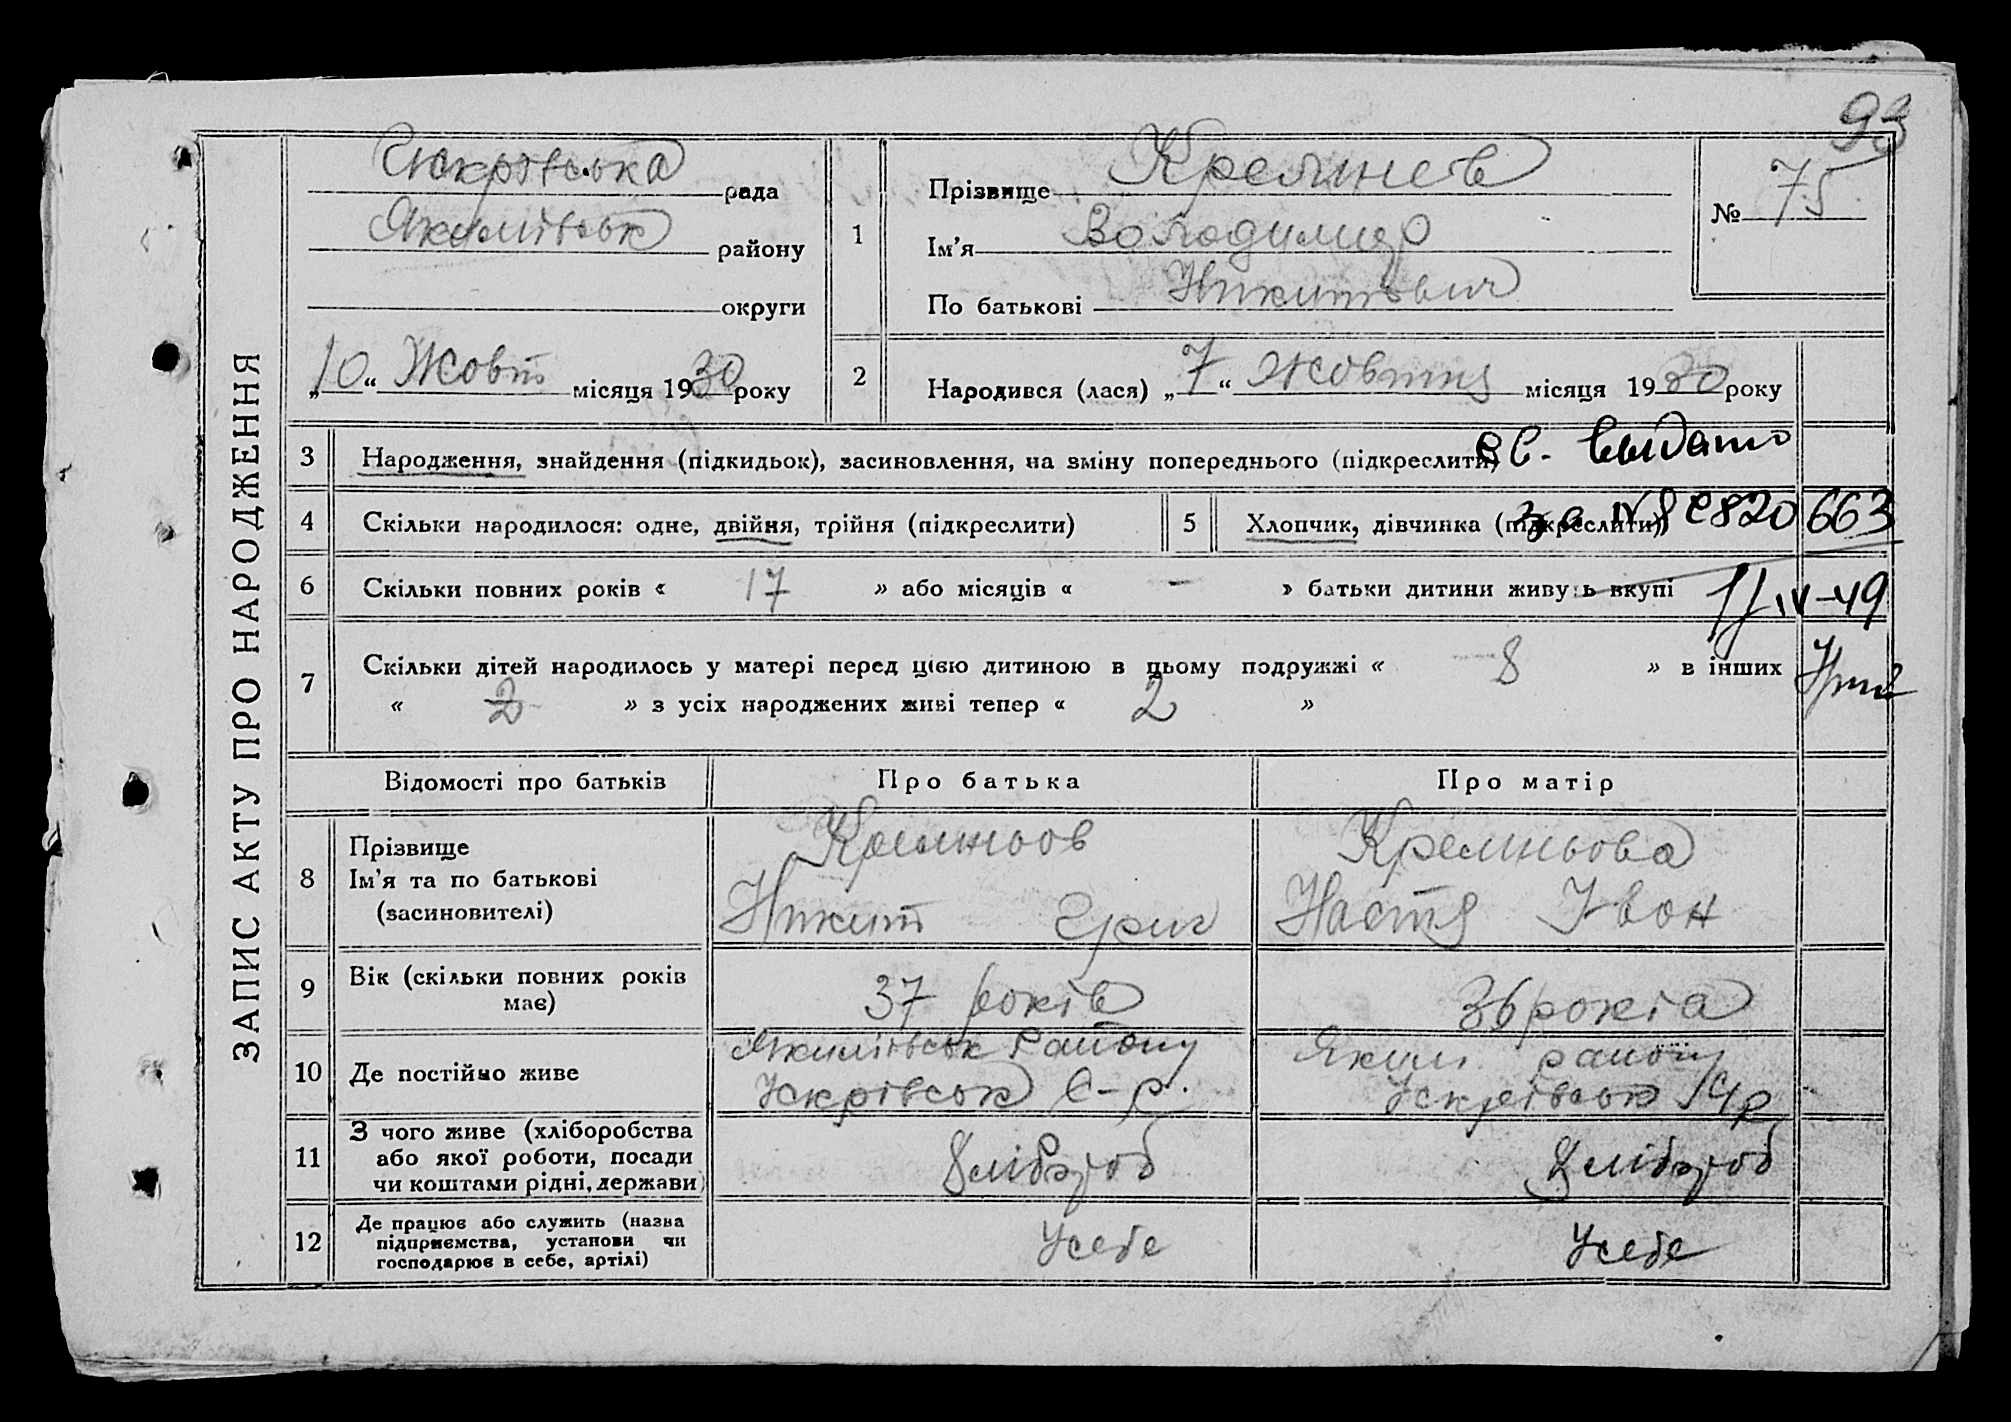 93
ЗАПИС АКТУ ПРО НАРОДЖЕННЯ
рада
Якимівськ району
округи
„10“ Жовт місяця 1930 року
1
Прізвище Кремнев
Ім'я Володимир
По батькові Никитович
№ 75
2
Народився (лася) „7“ Жовтня місяця 1930 року
3 Народження, знайдення (підкидьок), засиновлення, на зміну попереднього (підкреслити)
св. выдано
4 Скільки народилося: одне, двійня, трійня (підкреслити)
5 Хлопчик, дівчинка (підкреслити)
за № 820663
6 Скільки повних років « 17 » або місяців « – » батьки дитини живуть вкупі
IV-49
7 Скільки дітей народилось у матері перед цією дитиною в цьому подружжі « 8 » в інших
« 2 » з усіх народжених живі тепер « 2 »
Відомості про батьків Про батька Про матір
8 Прізвище
Ім'я та по батькові
(засиновителі)
Кремньов
Никит Григ
Кремньова
Настя Іван
9 Вік (скільки повних років
має)
37 років
36 років
10 Де постійно живе
Якимівськ Району
Іскрівськ С-р.
Яким. району
Іскрівськ С/р
11 З чого живе (хліборобства
або якої роботи, посади
чи коштами рідні, держави)
Хлібороб
Хлібороб
12 Де працює або служить (назва
підприємства, установи чи
господарює в себе, артілі)
У себе
У себе